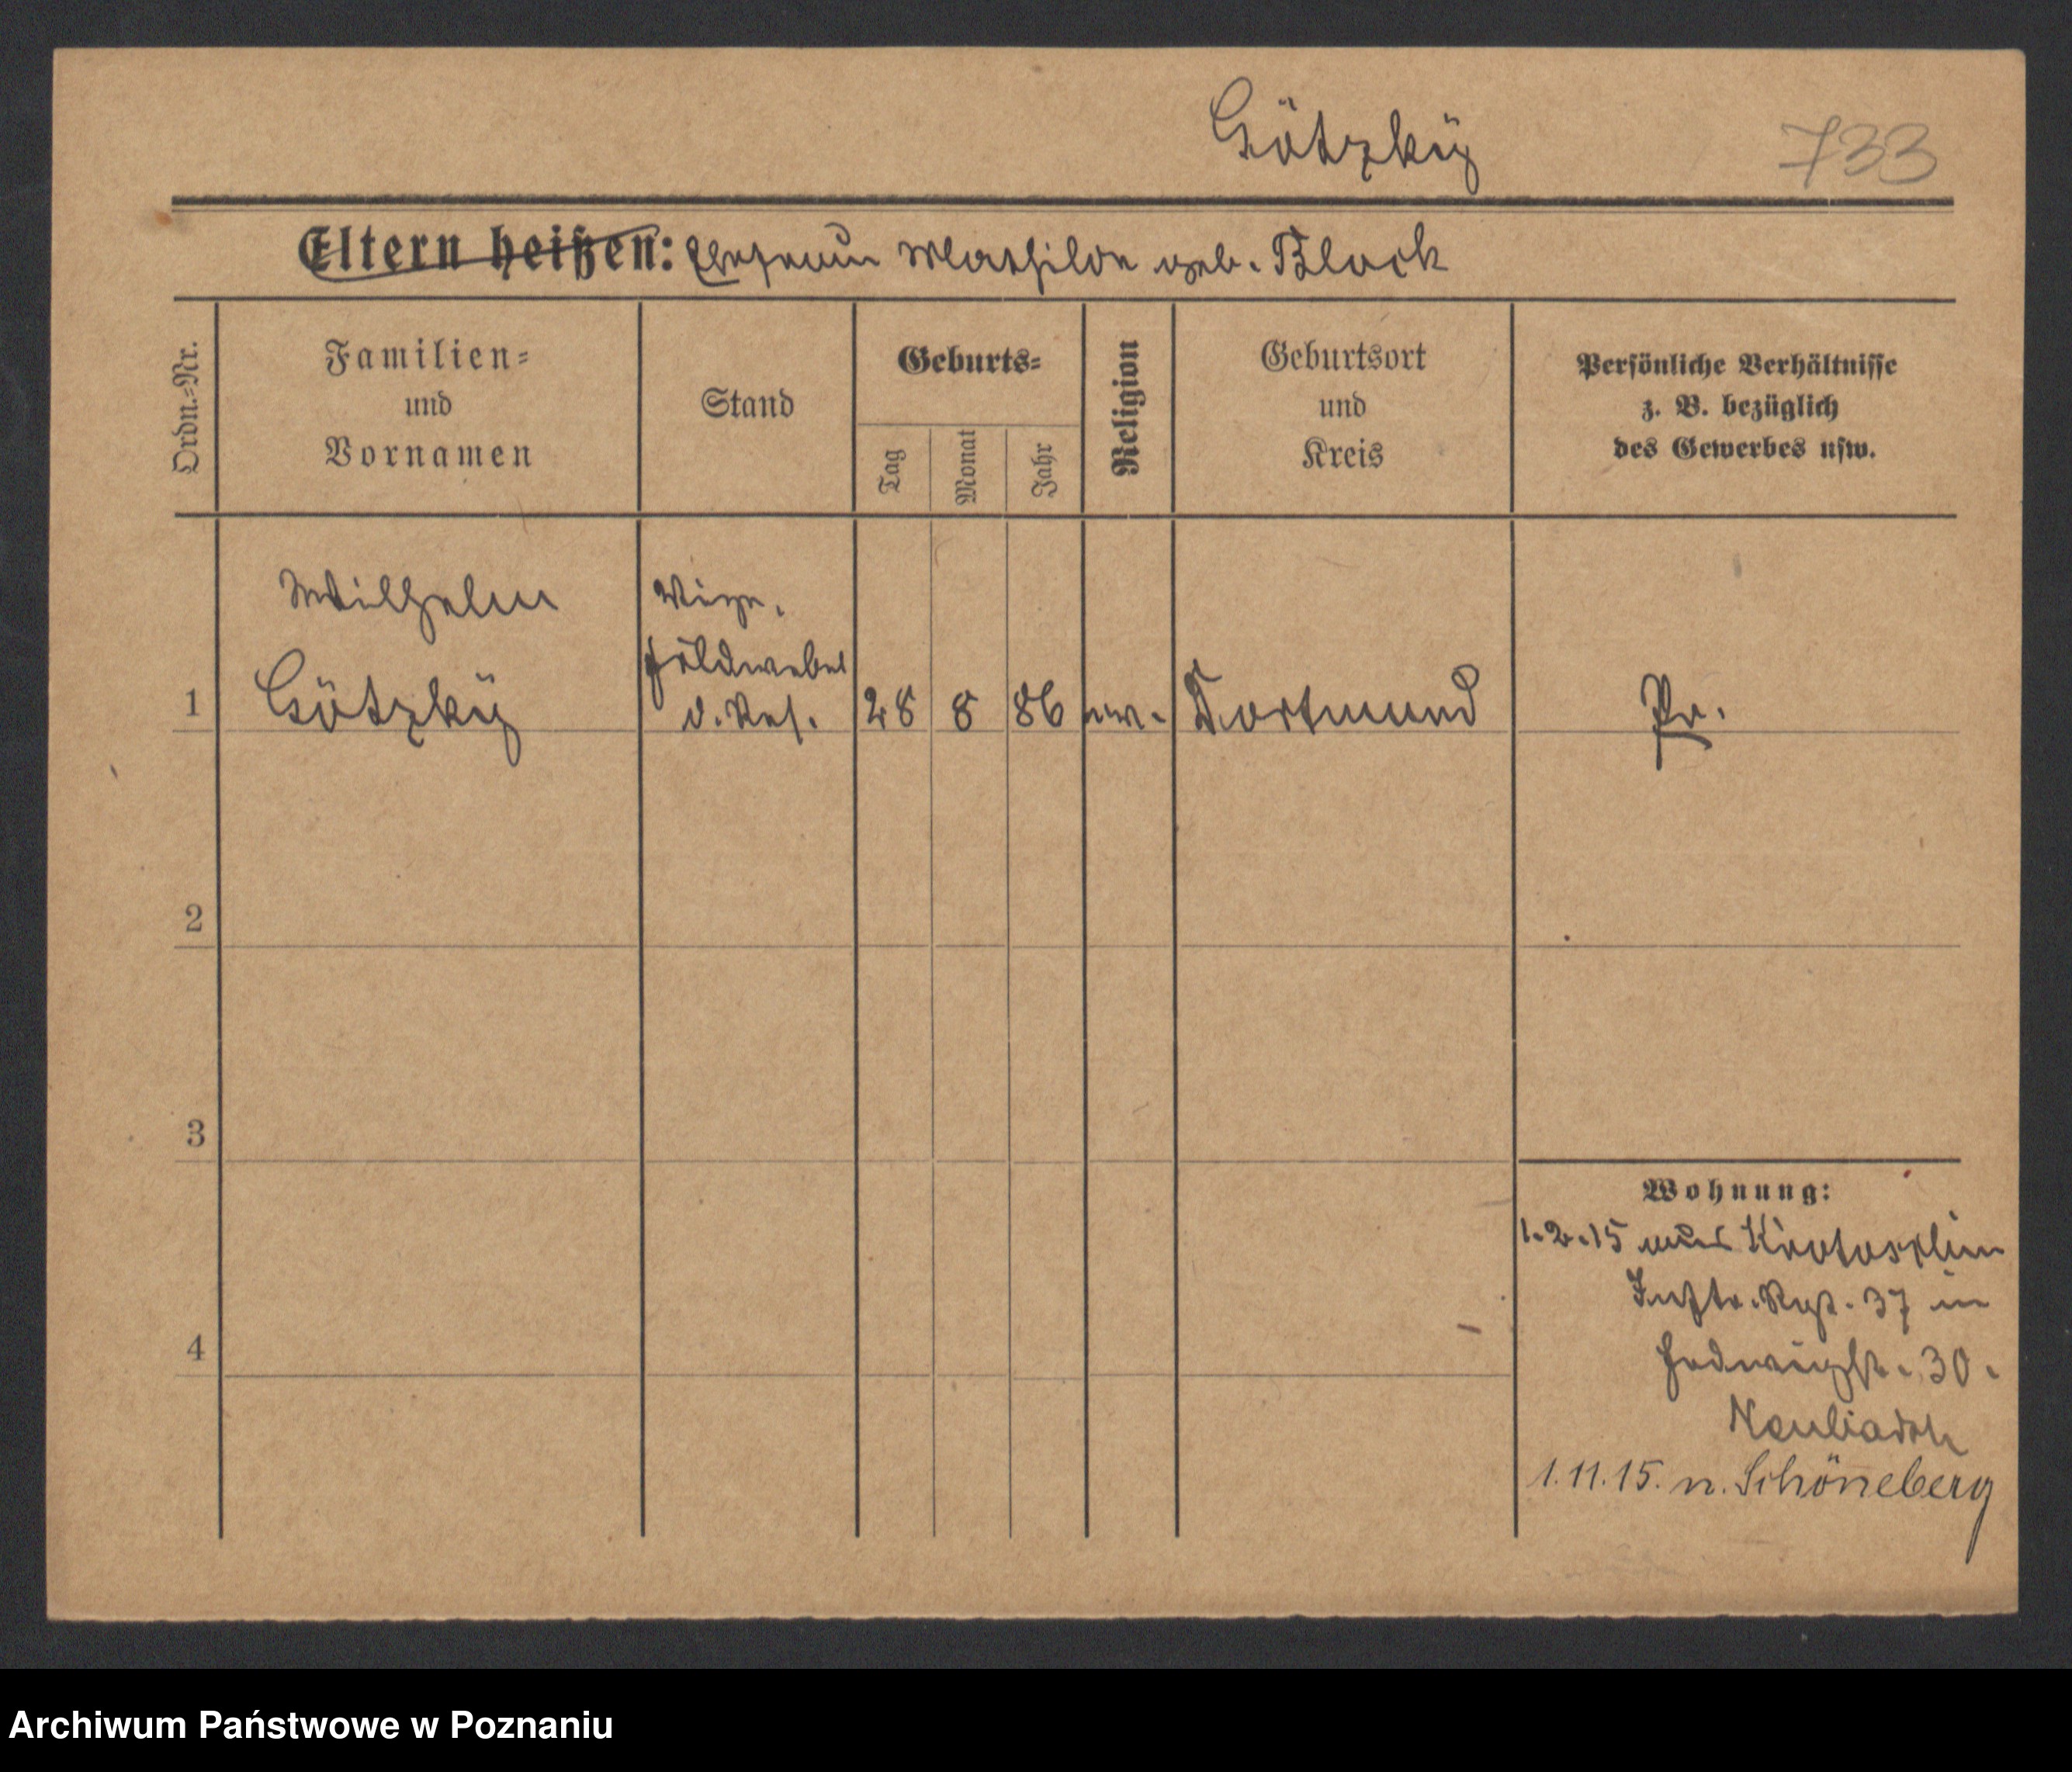 Götzky
733
Eltern heißen: Ehefrau Mathilde geb. Block
Ordn.-Nr.
Familien-
und
Vornamen
Stand
Geburts-
Tag
Monat
Jahr
Religion
Geburtsort
und
Kreis
Persönliche Verhältnisse
z. B. bezüglich
des Gewerbes usw.
1
Wilhelm
Götzky
Vize.
feldwebel
d. Res.
28
8
86
ev.
Dortmund
Pr.
2
3
4
Wohnung:
1.2.15 aus Krotoschin
Inftr. Rgt. 37 in
Hedwigstr. 30.
1.11.15. n. Schöneberg
Archiwum Państwowe w Poznaniu